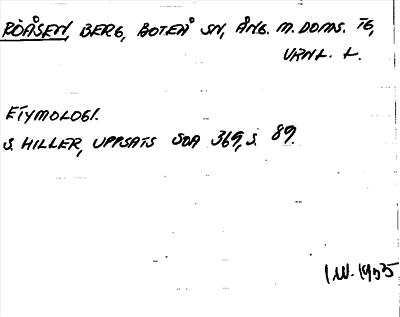 RÖÅSEN, BERG, BOTEÅ SN, ÅNG. M. DOMS. TG,
VRNL. L.
ETYMOLOGI.
S. HILLER, UPPSATS SOA 369, S. 89.